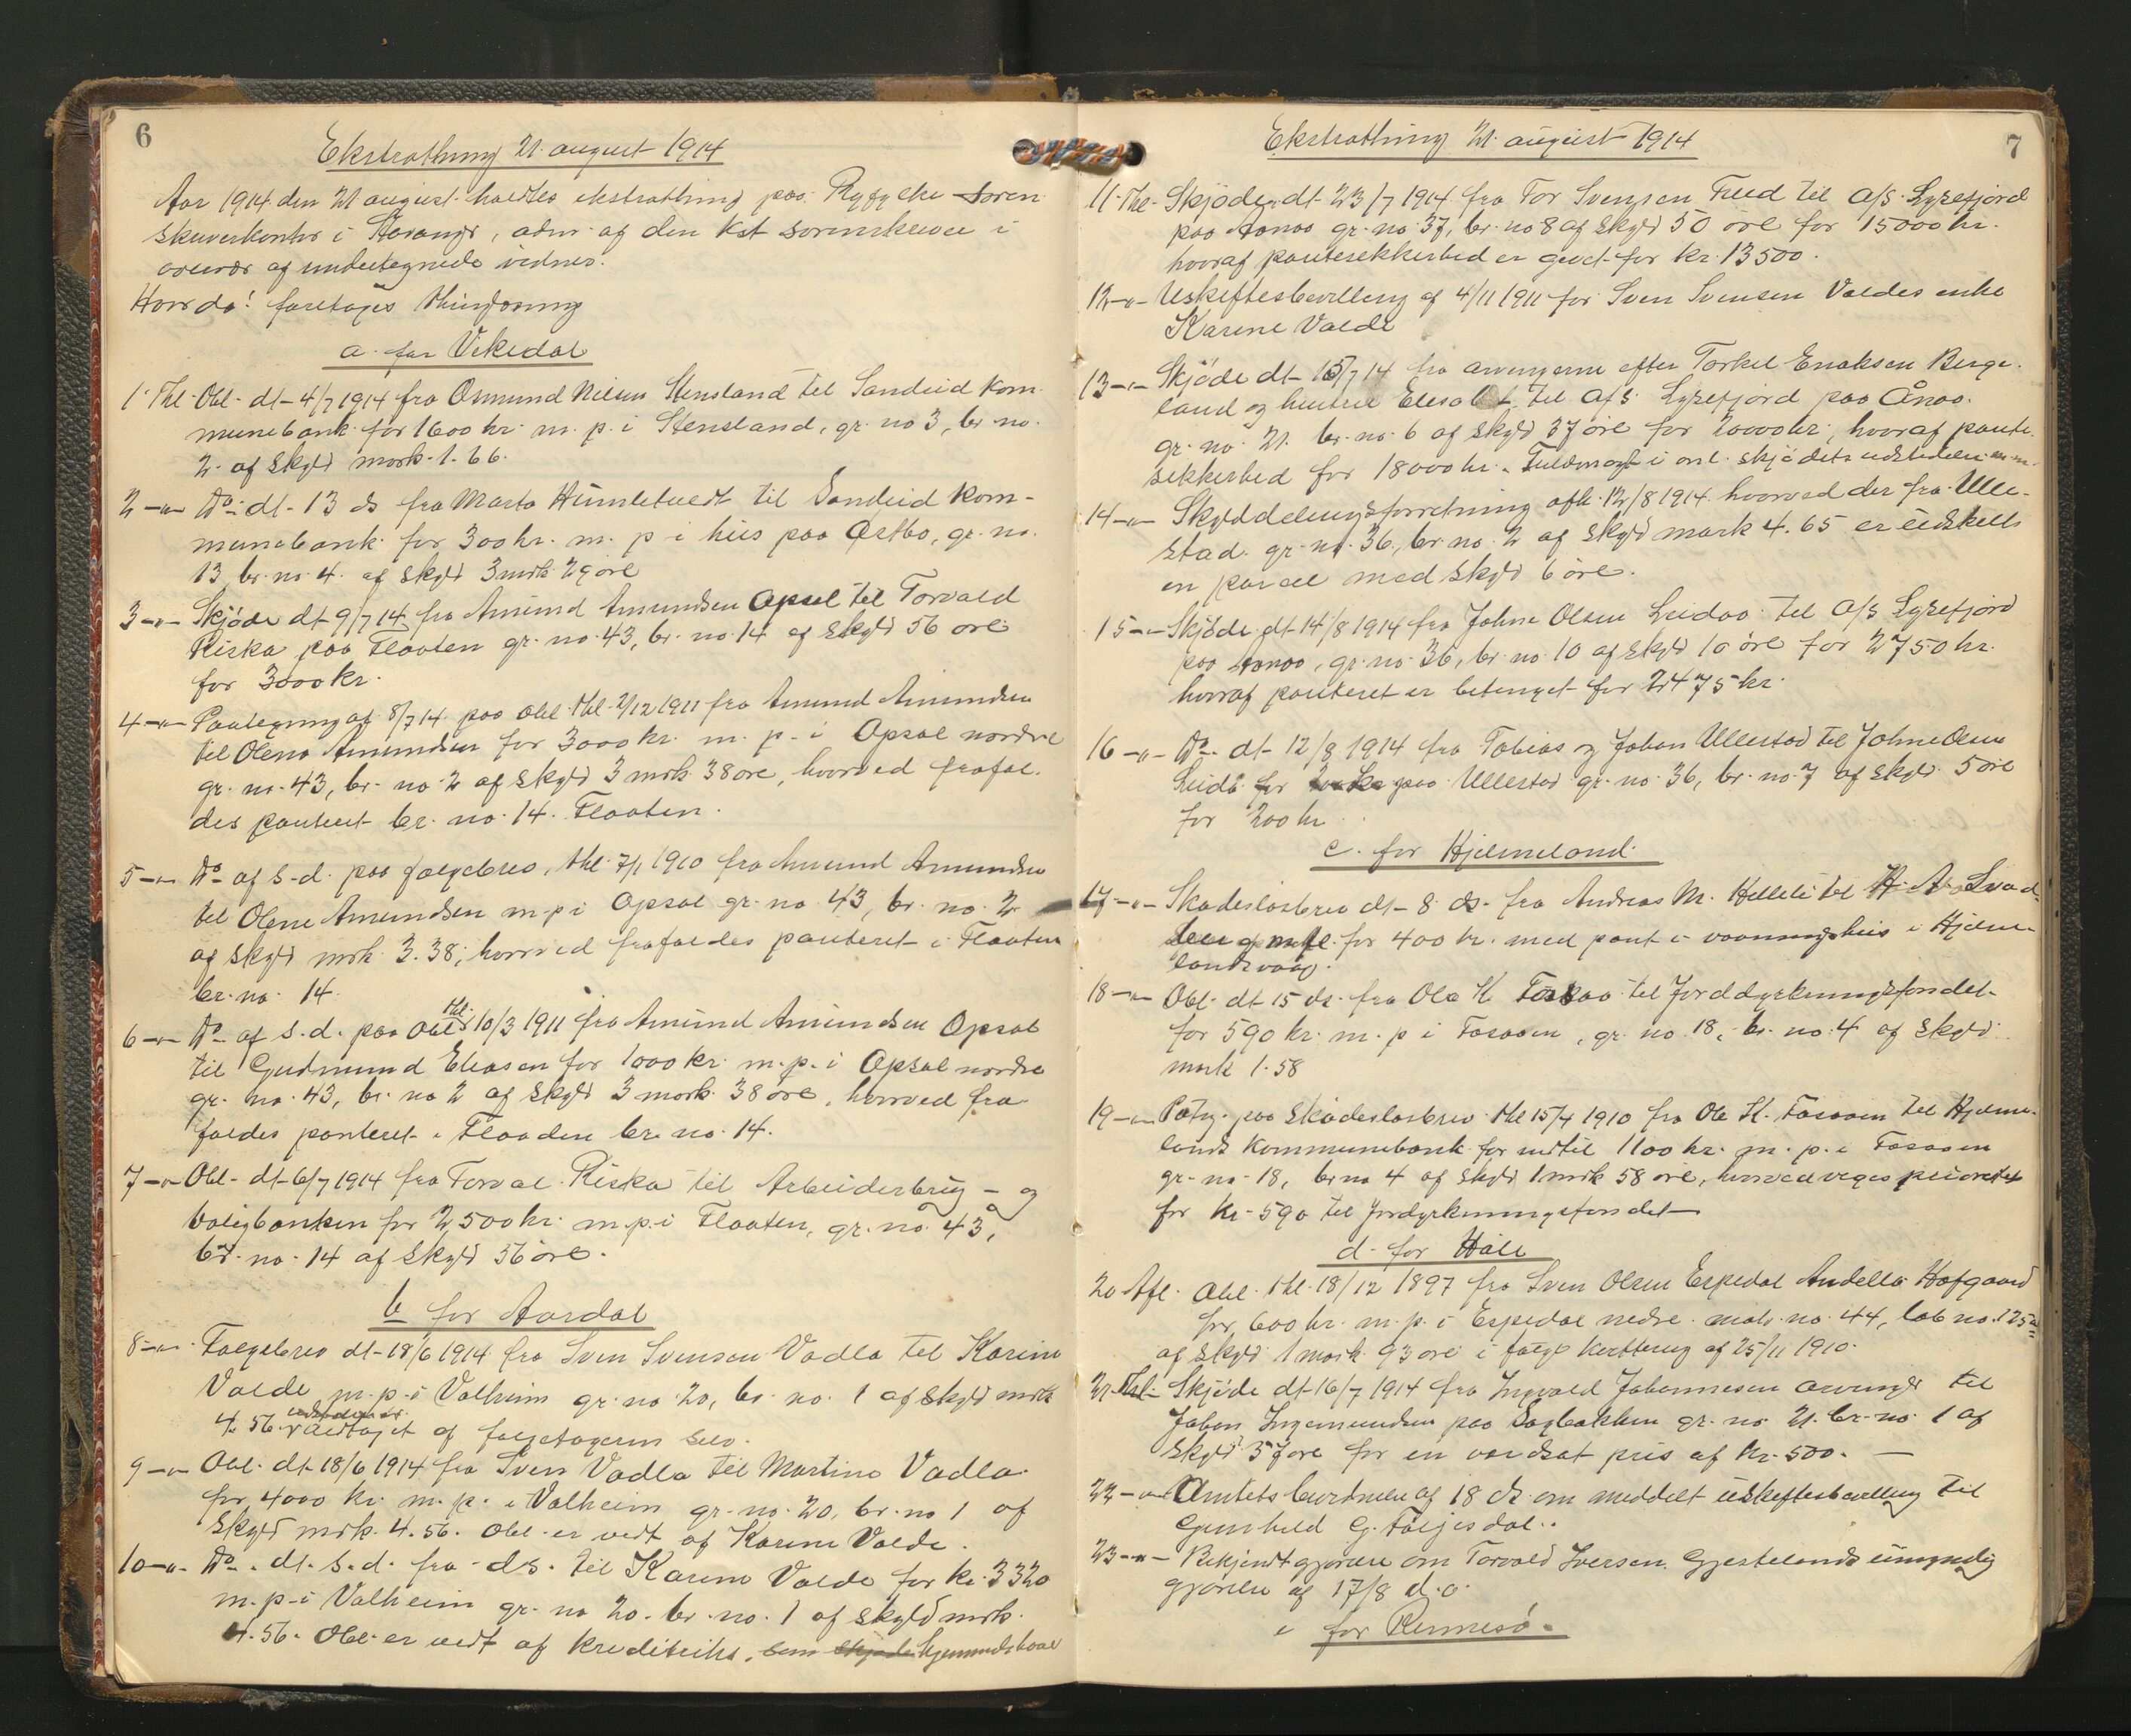 6
Ekstrathing 21. august 1914
Aar 1914 den 21 august holdtes ekstrathing paa Ryfylke soren-
skriverkontor i Stavanger, adm. af den kst sorenskriver i
overvær af undertegnede vidner.
Hvor da: foretages thinglæsning
a. for Vikedal
1. Thl. Obl. dt. 4/7 1914 fra Osmund Nilsen Stensland til Sandeid kom-
munebank for 1600 kr. m. p. i Stensland, gr. no 3, br. no.
2. af skyld mark 1.66.
2 -"- Do. dt. 13 ds fra Marta Himletvedt til Sandeid kom-
munebank for 300 kr. m. p. i hus paa Østbø, gr. no.
13 br. no. 4. af skyld 3 mrk. 29 øre
3 -"- Skjøde dt 9/7 14 fra Amund Amundsen Opsal til Torvald
Riska paa Flaaten gr. no. 43, br. no. 14 af skyld 56 øre
for 3000 kr.
4 -"- Paategning af 8/7 14 paa obl. thl. 2/12 1911 fra Amund Amundsen
til Olena Amundsen for 3000 kr. m. p. i Opsal nordre
gr. no. 43, br. no. 2 af skyld 3 mrk. 38 øre, hvorved frafal-
des panteret br. no. 14. Flaaten.
5 -"- Do af s.d. paa følgebrev, thl. 7/1 1910 fra Amund Amundsen
til Olene Amundsen m.p. i Opsal gr. no. 43, br. no. 2
af skyld mrk. 3.38, hvorved frafaldes panteret i Flaaten
br. no. 14.
6 -"- Do af s.d. paa obl. thl. 10/3 1911 fra Amund Amundsen Opsal
til Gudmund Eliasen for 1000 kr. m.p. i Opsal nordre
gr. no. 43, br. no 2 af skyld 3 mark 38 øre, hvorved fra-
faldes panteret i Flaaden br. no. 14.
7 -"- Obl. dt. 6/7 1914 fra Torval Riska til Arbeiderbrug- og
Boligbanken for 2500 kr. m.p. i Flaaten, gr. no. 43,
br. no. 14 af skyld 56 øre.
b for Aardal
8 -"- Følgebrev dt. 18/6 1914 fra Sven Svensen Vadla til Karine
Valde m.p. i Valheim gr. no. 20, br. no. 1 af skyld mrk
4.56. vedtaget af følgetageren selv.
9 -"- Obl. dt. 18/6 1914 fra Sven Vadla til Martine Vadla
for 4000 kr. m. p. i Valheim gr. no. 20, br. no 1 af
skyld mrk. 4.56. Obl. er vedt af Karine Valde.
10 -"- Do. dt. s.d. fra ds. til Karine Valde for kr. 3320
m.p. i Valheim gr. no 20. br. no. 1 af skyld mrk.
4.56. Obl. er vedt af kreditriks, som
Ekstrathing 21. august 1914
7
11. Thl. Skjøde dt. 23/7 1914 fra Tor Svensen Tued til A/S Lysefjord
paa Aanaa gr. no. 37, br. no 8 af skyld 50 øre for 15000 kr.
hvoraf pantesikkerhed er gevet for kr. 13500.
12 -"- Uskiftesbevilling af 4/11 1911 for Sven Svensen Valdes enke
Karine Valde
13 -"- Skjøde dt. 15/7 14 fra arvingerne efter Torkel Enoksen Berge-
land og hustru Elisabet til A/S Lysefjord paa Ånaa
gr. no. 21. br. no. 6 af skyld 37 øre for 20000 kr., hvoraf pante-
sikkerhed for 18000 kr. Fuldmagt i orl. skjødets udstedelse m.m.
14 -"- Skylddelingsforretning afh. 12/8 1914 hvorved der fra Ulle-
stad gr. no. 36, br. no. 2 af skyld mark 4.65 er udskilt
en parcel med skyld 6 øre.
15 -"- Skjøde dt. 14/8 1914 fra Johne Olsen Leidaa til A/S Lysefjord
paa Aanaa, gr. no. 36, br. no. 10 af skyld 10 øre for 2750 kr.
hvoraf panteret er betinget for 2475 kr.
16 -"- Do. dt. 12/8 1914 fra Tobias og Johan Ullestad til Johne Olsen
Leidå for paa Ullestad gr. no. 36, br. no. 7 af skyld 5 øre
for 200 kr
c. for Hjelmeland
17 -"- Skadesløsbrev dt. 8 ds. fra Andreas M. Helleli til H. A. Svad-
berg m fl. for 400 kr. med pant i vaaningshus i Hjelme-
landsvaag.
18 -"- Obl. dt 15 ds. fra Ola K. Fosaa til Jorddyrkningsfondet
for 590 kr. m. p. i Fosaaen, gr. no. 18, br. no. 4 af skyld
mark 1.58
19 -"- Patg. paa skadesløsbrev thl 15/4 1910 fra Ole K. Fosaaen til Hjelme-
lands kommunebank for indtil 1100 kr. m. p. i Fosaaen
gr. no. 18, br no 4 af skyld 1 mrk 58 øre, hvorved viges prioritet
for kr. 590 til Jordyrkningsfondet
d. for Høle
20 Afl. Obl. thl. 18/12 1897 fra Sven Olsen Espedal Andella Hofgaard
for 600 kr. m. p. i Espedal nedre matr. no. 44, løb no. 125
af skyld 1 mark 93 øre i følge kvittering af 25/11 1910.
21. Thl. Skjøde dt. 16/7 1914 fra Ingvald Johannesen arvinger til
Johan Ingemundsen paa Sagbakken gr. no. 21. br. no. 1 af
skyld 37 øre for en værdsat pris af kr. 500. —
22 -"- Amtets burdmelse af 18 ds. om meddelt uskiftesbevilling til
Gunhild G. Følgjesdal.
23 -"- Bekjendtgjørelse om Torvald Iversen Gjestelands umyndig
gjørelse af 17/8 d.a.
e for Rennesø.